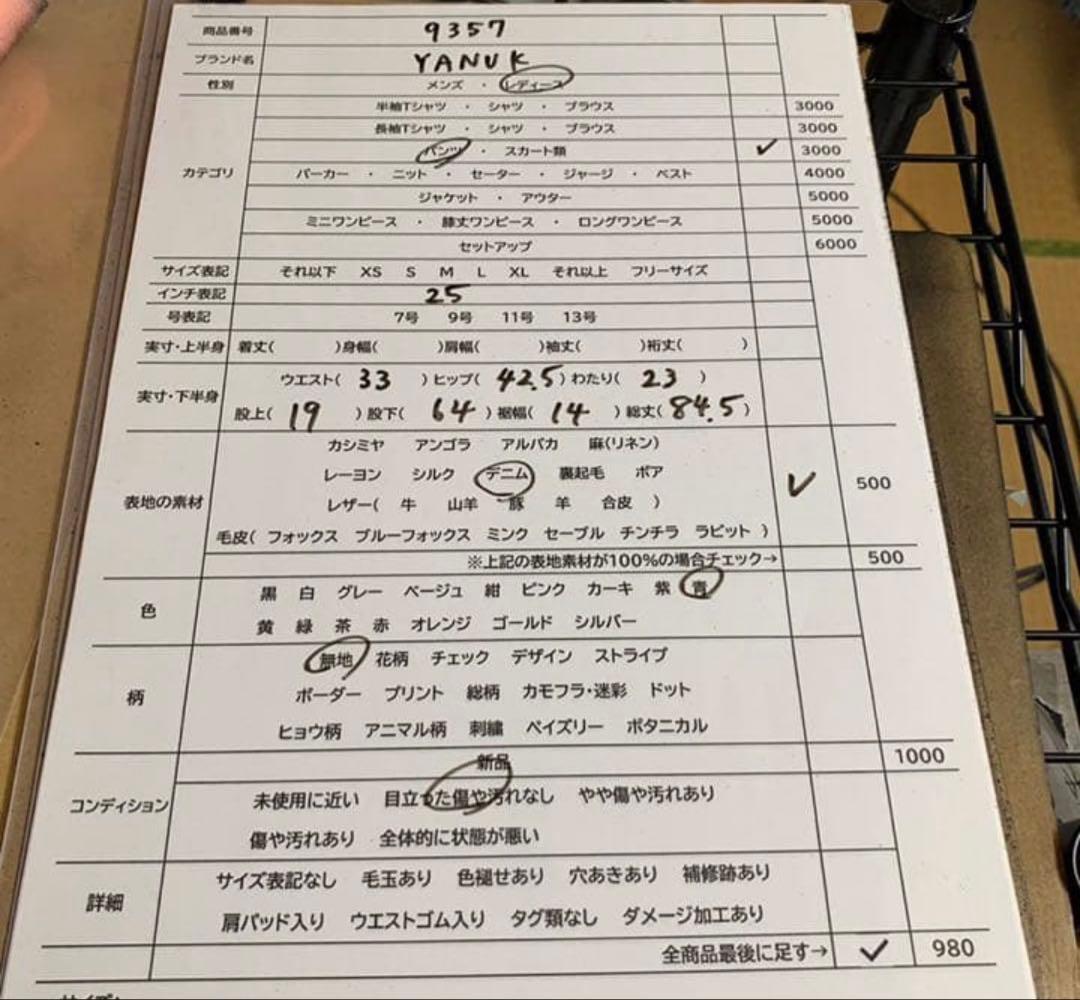 商品番号 9357
ブランド名 YANUK
性別 メンズ ・ レディース
カテゴリ
半袖Tシャツ ・ シャツ ・ ブラウス 3000
長袖Tシャツ ・ シャツ ・ ブラウス 3000
パンツ ・ スカート類 ✓ 3000
パーカー ・ ニット ・ セーター ・ ジャージ ・ ベスト 4000
ジャケット ・ アウター 5000
ミニワンピース ・ 膝丈ワンピース ・ ロングワンピース 5000
セットアップ 6000
サイズ表記 それ以下 XS S M L XL それ以上 フリーサイズ
インチ表記 25
号表記 7号 9号 11号 13号
実寸・上半身 着丈( )身幅( )肩幅( )袖丈( )裄丈( )
実寸・下半身
ウエスト( 33 )ヒップ( 42.5 )わたり( 23 )
股上( 19 )股下( 64 )裾幅( 14 )総丈( 84.5 )
表地の素材
カシミヤ アンゴラ アルパカ 麻(リネン)
レーヨン シルク デニム 裏起毛 ボア ✓ 500
レザー( 牛 山羊 豚 羊 合皮 )
毛皮( フォックス ブルーフォックス ミンク セーブル チンチラ ラビット )
※上記の表地素材が100%の場合チェック→ 500
色
黒 白 グレー ベージュ 紺 ピンク カーキ 紫 青
黄 緑 茶 赤 オレンジ ゴールド シルバー
柄
無地 花柄 チェック デザイン ストライプ
ボーダー プリント 総柄 カモフラ・迷彩 ドット
ヒョウ柄 アニマル柄 刺繍 ペイズリー ボタニカル
コンディション
新品 1000
未使用に近い 目立った傷や汚れなし やや傷や汚れあり
傷や汚れあり 全体的に状態が悪い
詳細
サイズ表記なし 毛玉あり 色褪せあり 穴あきあり 補修跡あり
肩パッド入り ウエストゴム入り タグ類なし ダメージ加工あり
全商品最後に足す→ ✓ 980